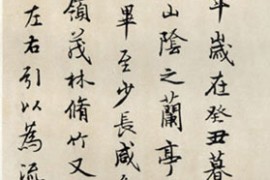 年歲在癸丑暮
山陰之蘭亭
畢至少長咸
領茂林脩竹又
左右引以為流